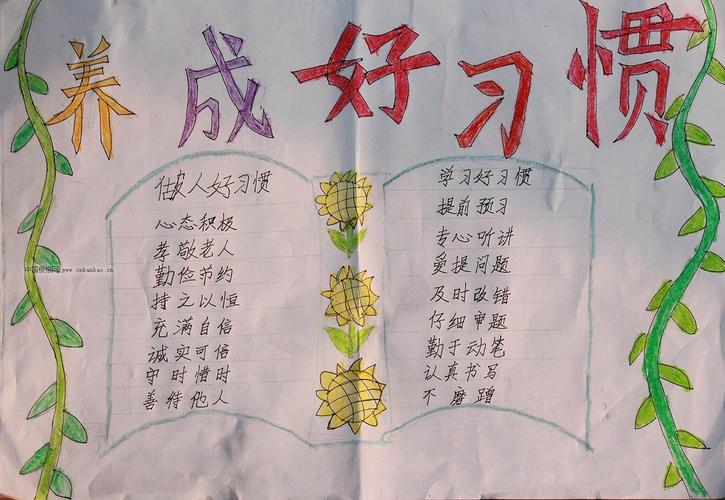 养成好习惯
做人好习惯
心态积极
孝敬老人
勤俭节约
持之以恒
充满自信
诚实可信
守时惜时
善待他人
学习好习惯
提前预习
专心听讲
爱提问题
及时改错
仔细审题
勤于动笔
认真书写
不磨蹭
中国板报网www.cnbanbao.cn